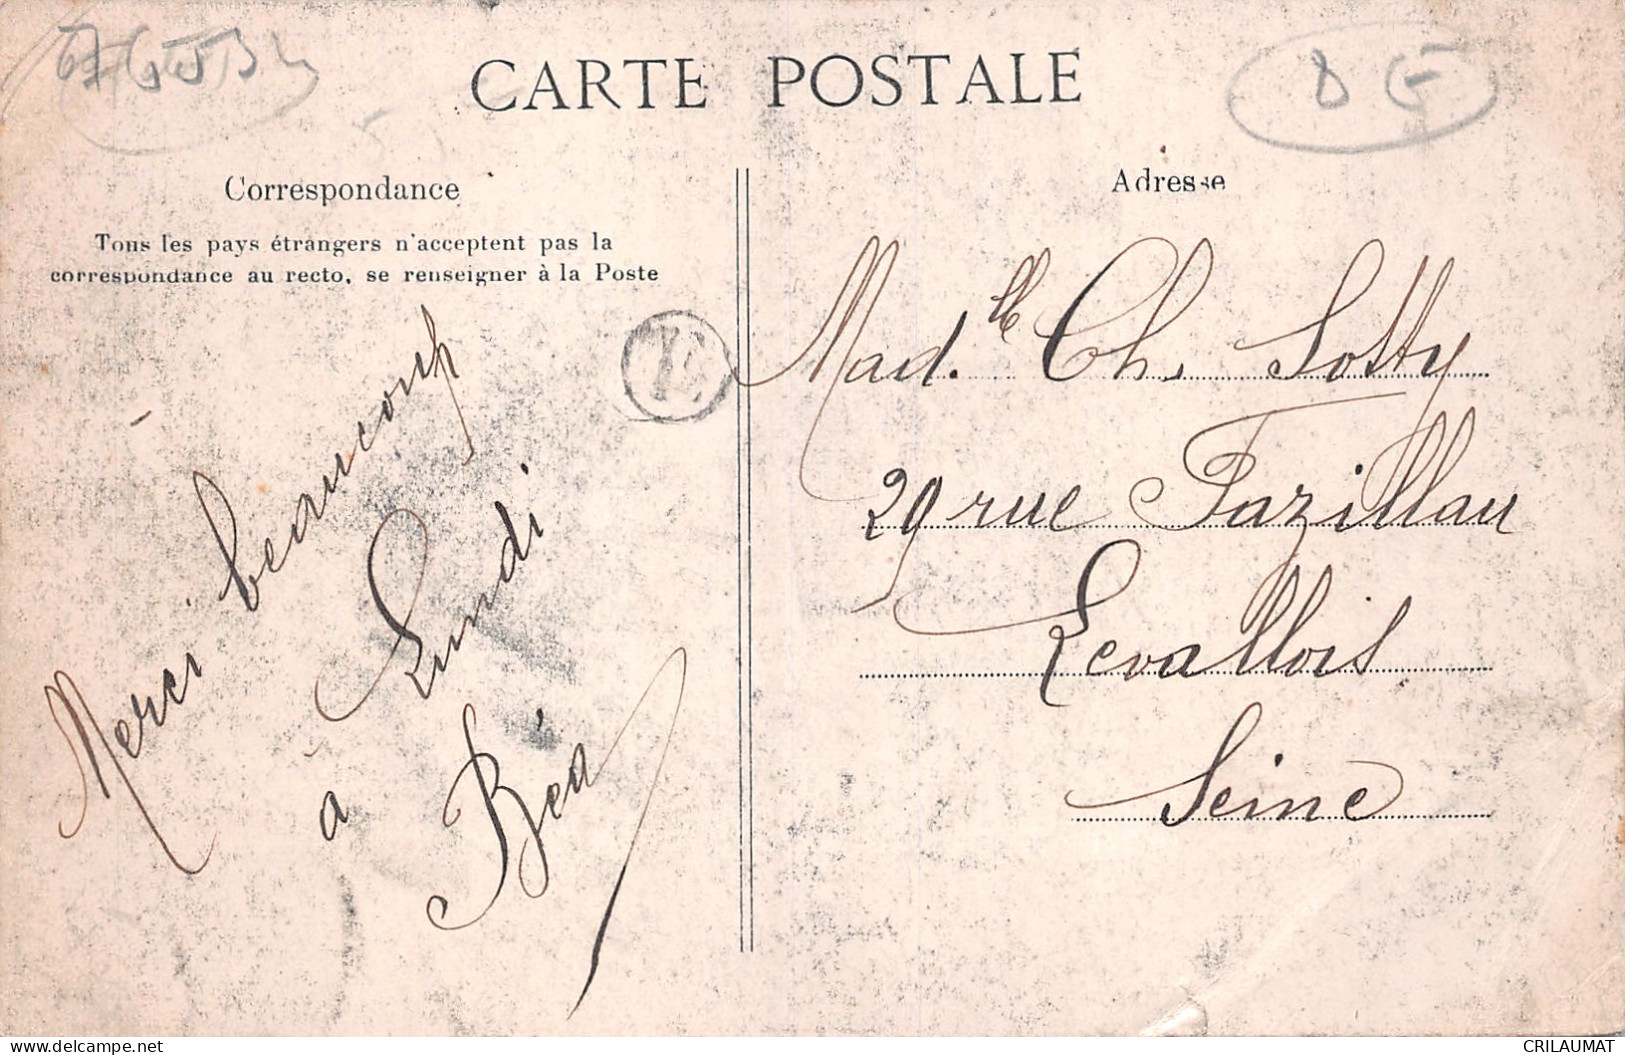 CARTE POSTALE
Correspondance
Tous les pays étrangers n'acceptent pas la
correspondance au recto, se renseigner à la Poste
Merci beaucoup
à Lundi
Béa
Adresse
Mad.lle Ch. Sotty
29 rue Fazillau
Levallois
Seine
CRILAUMAT